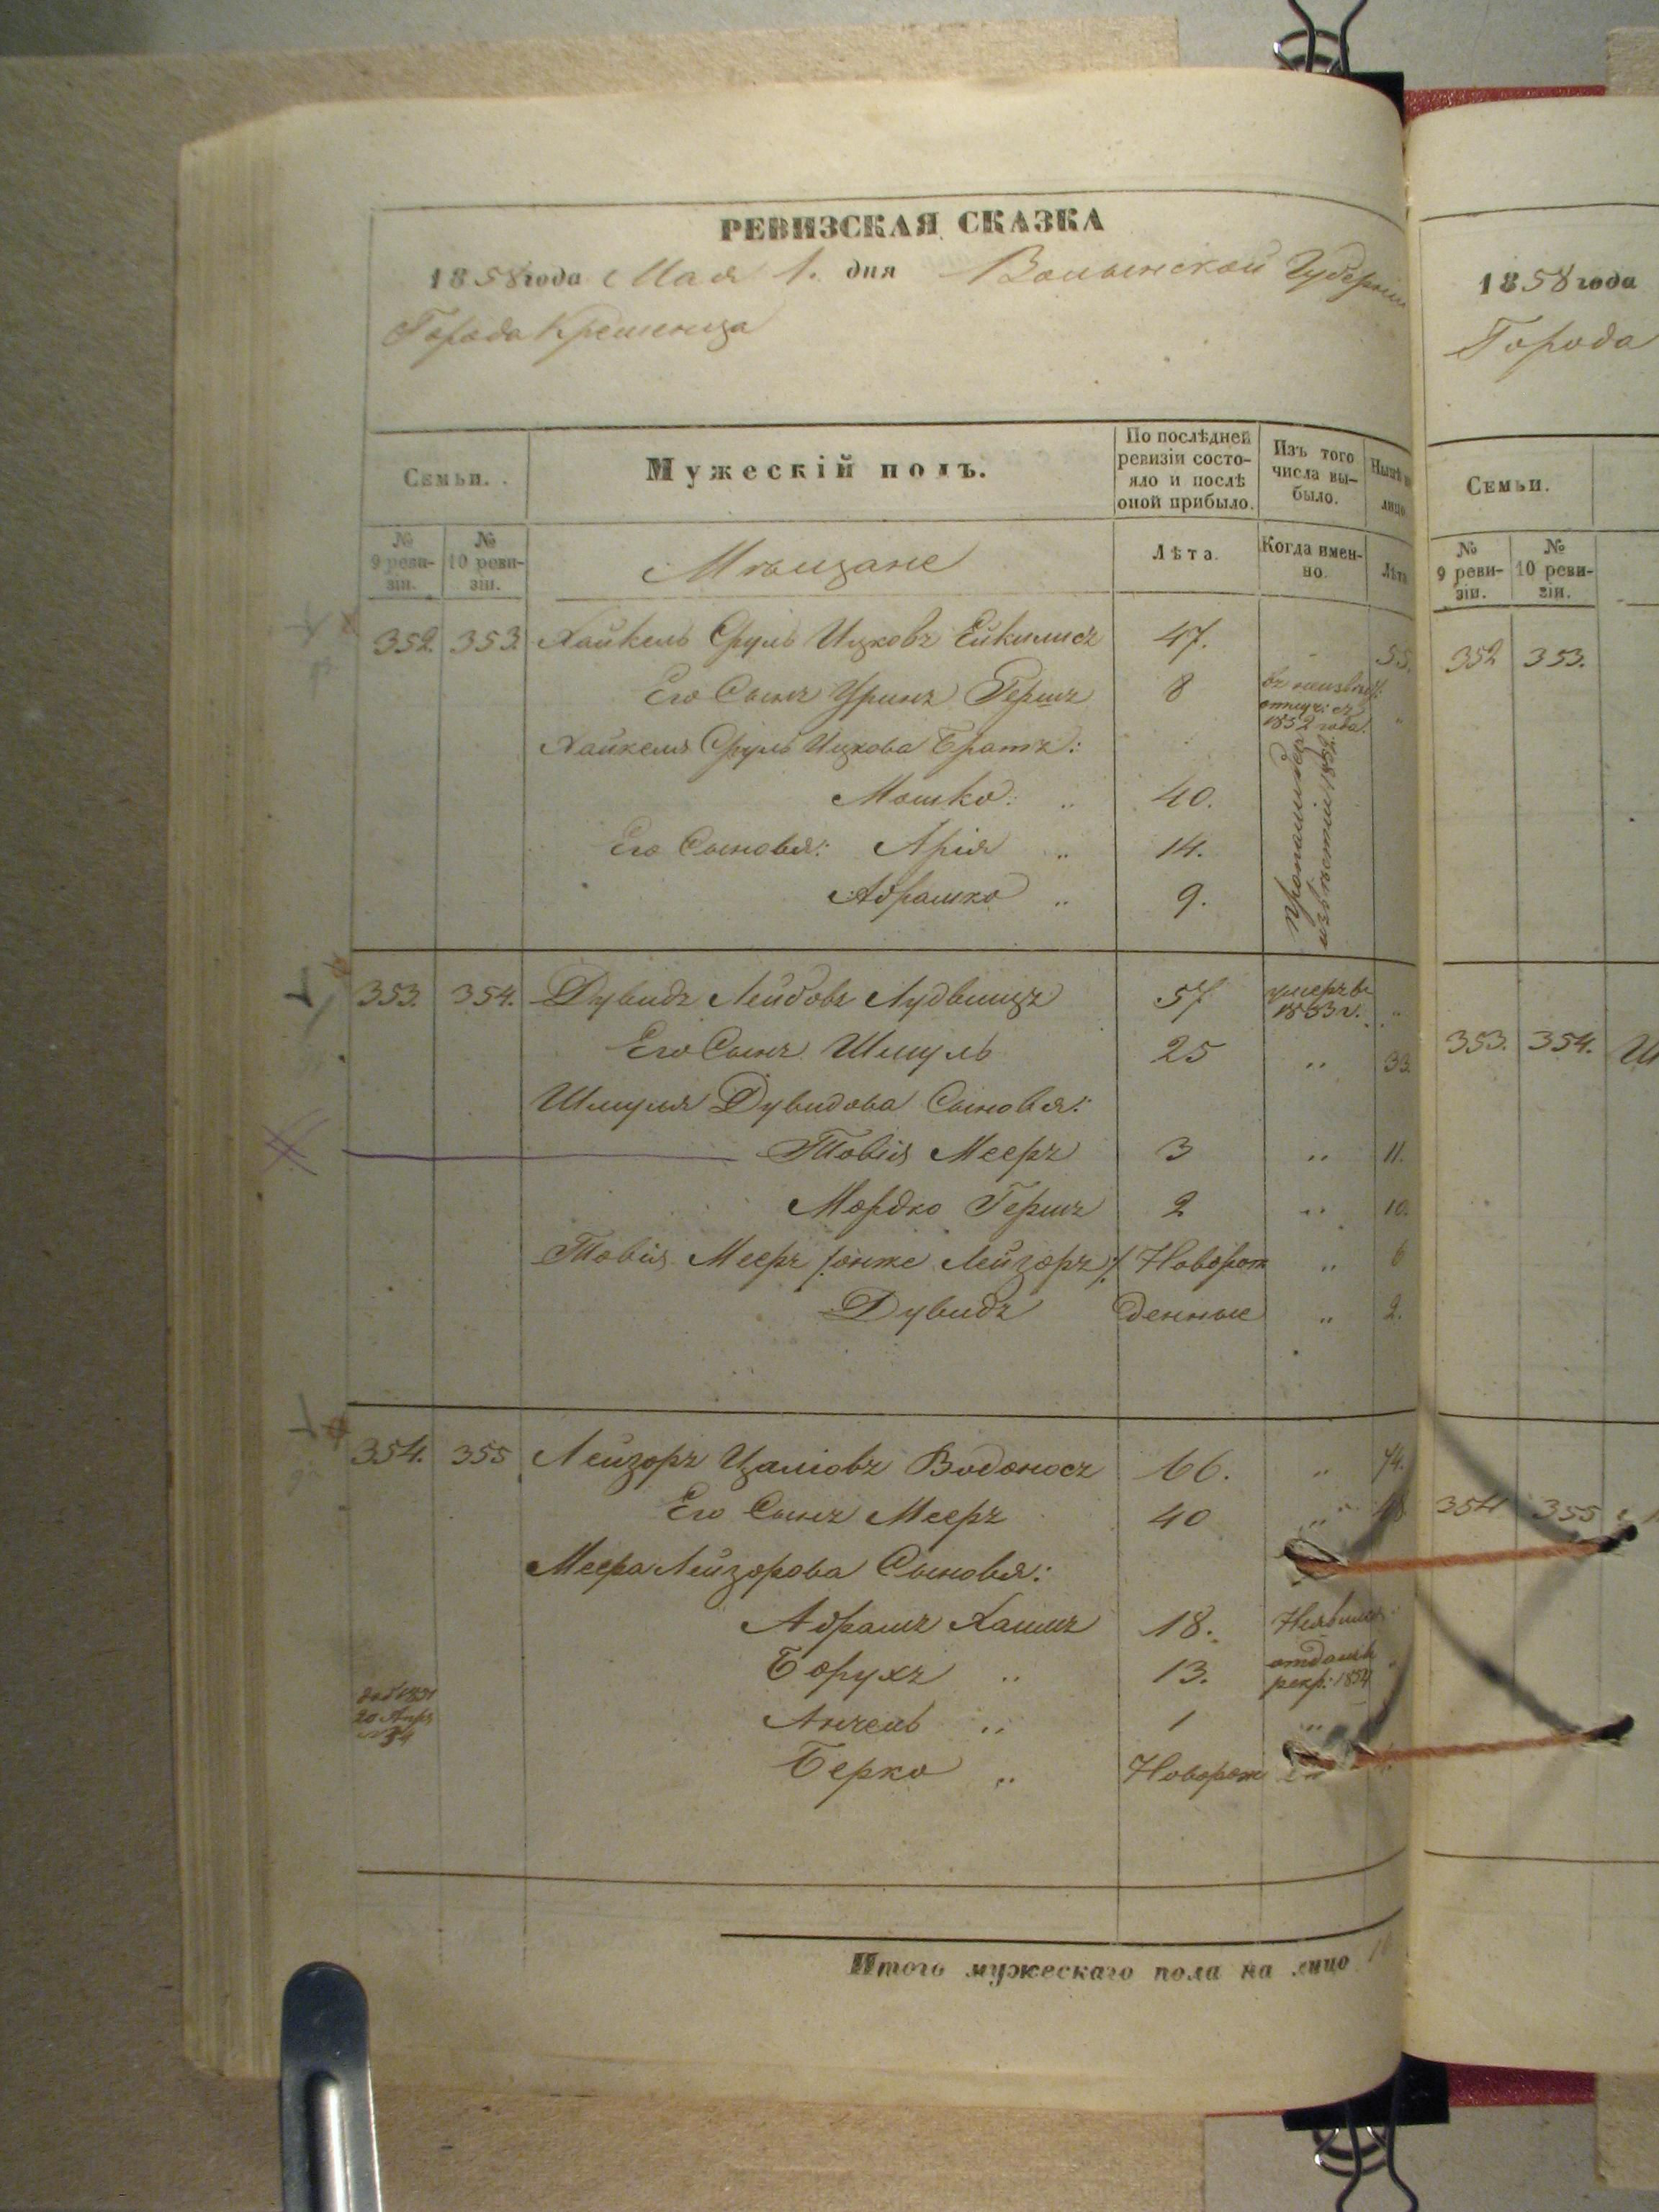 РЕВИЗСКАЯ СКАЗКА
1858 года Мая 1. дня Волынской Губернiи
Города Кременца
Семьи.
Мужескiй полъ.
По послѣдней ревизiи состо-
яло и послѣ
оной прибыло.
Изъ того
числа вы-
было.
Нынѣ на
лицо.
№ 9 реви-
зiи.
№ 10 реви-
зiи.
Мѣщане
Лѣта.
Когда имен-
но.
Лѣта
352. 353. Хайкель Сруль Ицковъ 47. 55.
Его Сынъ Гершъ 8 въ неизвѣст: отлуч: съ 1852 года.
Хайкеля Сруля Ицкова Братъ:
Мошко: „ 40.
Его Сыновья: Арiя „ 14.
Абрашко „ 9.
353. 354. Дувидъ Лейбовъ 57 умеръ въ 1853 г. „
Его Сынъ Шмуль 25 „ 33.
Шмуля Дувидова Сыновья:
Товiя Мееръ 3 „ 11.
Мордко Гершъ 2 „ 10.
Товiя Мееръ /онже Лейзоръ/ Новорож „ 6
Дувидъ денные „ 2.
354. 355 Лейзоръ Водоносъ 66. „ 74.
Его Сынъ Мееръ 40 „
Меера Лейзорова Сыновья:
Абрамъ Хаимъ 18.
Борухъ „ 13. отданъ в рекр: 1854 „
20 Апр
Анчель „ 1 „
Берко „ Новорож
Итого мужескаго пола на лицо
1858 года
Города
Семьи.
№ 9 реви-
зiи.
№ 10 реви-
зiи.
352 353.
353. 354.
354 355